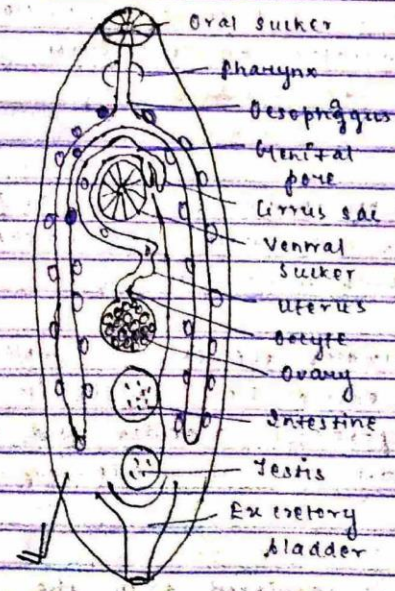 Oral sucker
Pharynx
Oesophaggus
Genital
pore
Cirrus sac
Ventral
sucker
Uterus
Oocyte
Ovary
Intestine
Testis
Excretory
bladder